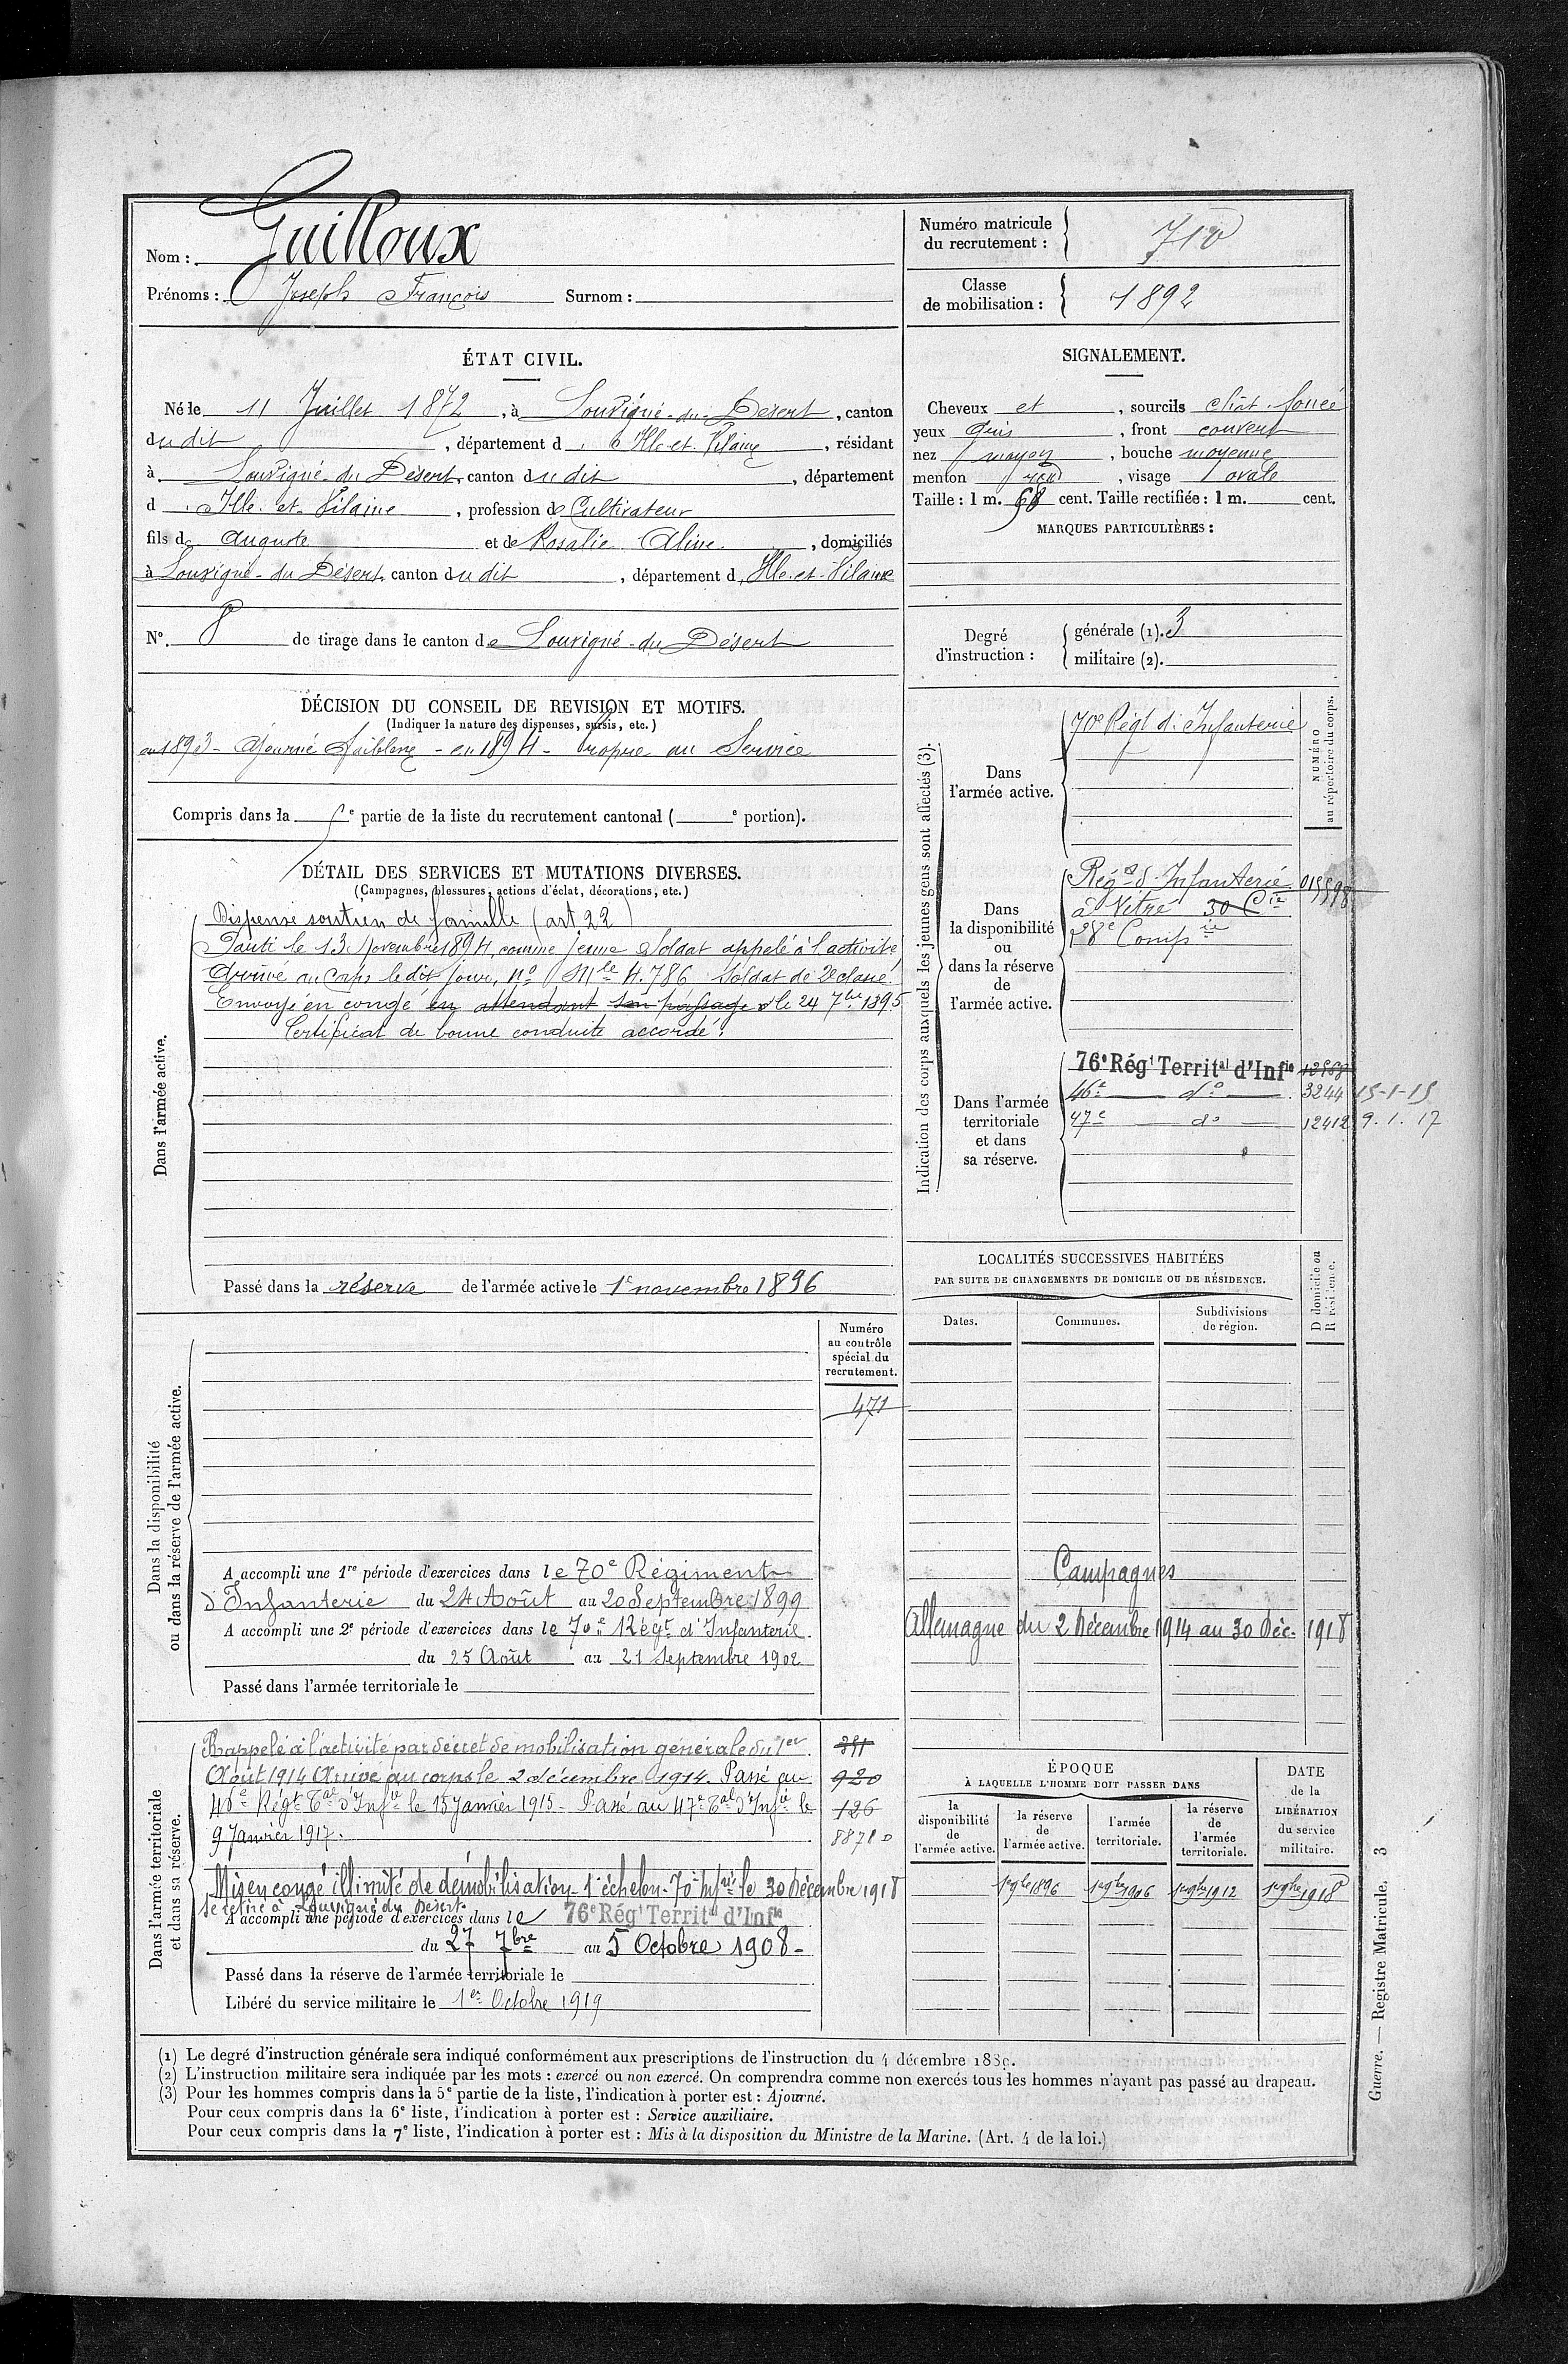 Nom : Guilloux
Prénoms : Joseph François Surnom :
Numéro matricule du recrutement : 710
Classe de mobilisation : 1892
ÉTAT CIVIL.
Né le 11 Juillet 1872, à Louvigné-du-Désert, canton
du dit, département d'Ille-et-Vilaine, résidant
à Louvigné-du-Désert, canton du dit, département
d'Ille-et-Vilaine, profession de Cultivateur
fils de Auguste et de Rosalie Aline, domiciliés
à Louvigné-du-Désert, canton du dit, département d'Ille-et-Vilaine
N° 8 de tirage dans le canton de Louvigné-du-Désert
SIGNALEMENT.
Cheveux et, sourcils chât. foncé
yeux gris, front couvert
nez moyen, bouche moyenne
menton rond, visage ovale
Taille : 1 m. 68 cent. Taille rectifiée : 1 m. cent.
MARQUES PARTICULIÈRES :
Degré d'instruction : générale (1). 3
militaire (2).
DÉCISION DU CONSEIL DE REVISION ET MOTIFS.
(Indiquer la nature des dispenses, sursis, etc.)
en 1893 - Ajourné faiblesse - en 1894 - Propre au Service
Compris dans la e partie de la liste du recrutement cantonal ( e portion).
DÉTAIL DES SERVICES ET MUTATIONS DIVERSES.
(Campagnes, blessures, actions d'éclat, décorations, etc.)
Dans l'armée active.
Dispensé soutien de famille (art 22)
Parti le 13 Novembre 1894, comme jeune Soldat appelé à l'activité
Arrivé au Corps le dit jour, n° Mle 4.786 Soldat de 2e classe.
Envoyé en congé en attendant son passage le 24 7bre 1895
Certificat de bonne conduite accordé.
Passé dans la réserve de l'armée active le 1r novembre 1896
Indication des corps auxquels les jeunes gens sont affectés (3).
NUMÉRO au répertoire du corps.
Dans l'armée active.
70e Régt d'Infanterie
Dans la disponibilité ou dans la réserve de l'armée active.
Régt d'Infanterie
à Vitré 30 Cie
28e Compie
Dans l'armée territoriale et dans sa réserve.
76e Régt Territal d'Infie
46e d° 3244 15-1-15
47e d° 12412 9.1.17
LOCALITÉS SUCCESSIVES HABITÉES
PAR SUITE DE CHANGEMENTS DE DOMICILE OU DE RÉSIDENCE.
Dates. Communes. Subdivisions de région. D domicile ou R résidence.
Dans la disponibilité ou dans la réserve de l'armée active.
Numéro au contrôle spécial du recrutement.
471
A accompli une 1re période d'exercices dans le 70e Régiment
d'Infanterie du 24 Août au 20 Septembre 1899
A accompli une 2e période d'exercices dans le 70e Régt d'Infanterie.
du 25 Août au 21 Septembre 1902
Passé dans l'armée territoriale le
Campagnes
Allemagne du 2 Décembre 1914 au 30 Déc. 1918
Dans l'armée territoriale et dans sa réserve.
Rappelé à l'activité par décret de mobilisation générale du 1er
Août 1914 Arrivé au corps le 2 décembre 1914. Passé au
46e Régt Tal d'Infie le 15 Janvier 1915 - Passé au 47e Tal d'Infie le
9 Janvier 1917.
920
126
8871 D
Mis en congé illimité de démobilisation 1r échelon - 70 Infrie le 30 Décembre 1918
se retire à Louvigné du Désert
A accompli une période d'exercices dans le 76e Régt Territal d'Infie
du 27 7bre au 5 Octobre 1908 -
Passé dans la réserve de l'armée territoriale le
Libéré du service militaire le 1er Octobre 1919
ÉPOQUE
À LAQUELLE L'HOMME DOIT PASSER DANS
la disponibilité de l'armée active.
la réserve de l'armée active.
l'armée territoriale.
la réserve de l'armée territoriale.
DATE de la LIBÉRATION du service militaire.
1er 9bre 1896 1er 9bre 1906 1er 9bre 1912 1er 9bre 1918
(1) Le degré d'instruction générale sera indiqué conformément aux prescriptions de l'instruction du 4 décembre 1889.
(2) L'instruction militaire sera indiquée par les mots : exercé ou non exercé. On comprendra comme non exercés tous les hommes n'ayant pas passé au drapeau.
(3) Pour les hommes compris dans la 5e partie de la liste, l'indication à porter est : Ajourné.
Pour ceux compris dans la 6e liste, l'indication à porter est : Service auxiliaire.
Pour ceux compris dans la 7e liste, l'indication à porter est : Mis à la disposition du Ministre de la Marine. (Art. 4 de la loi.)
Guerre. — Registre Matricule. 3